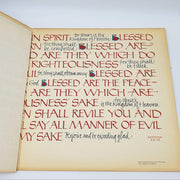 N SPIRIT for theirs is the Kingdom of Heaven. BLESSED
for they shall be comforted. BLESSED ARE
D ARE THEY WHICH DO
IGHTEOUSNESS for they shall be filled.
BUT they shall obtain mercy. BLESSED ARE
God. BLESSED ARE THE PEACE
ARE THEY WHICH ARE
SAKE for theirs is the Kingdom of Heaven.
N SHALL REVILE YOU AND
L SAY ALL MANNER OF EVIL
MY SAKE Rejoice and be exceeding glad.